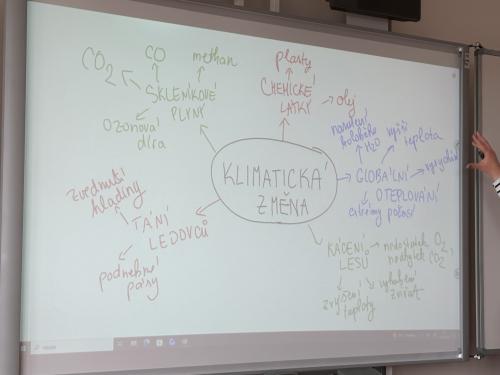 CO2
CO
methan
SKLENÍKOVÉ
PLYNY
OZONOVÁ
díra
plasty
CHEMICKÉ
LÁTKY
olej
narušení
koloběhu
H2O
vyšší
teplota
GLOBÁLNÍ
OTEPLOVÁNÍ
extrémy počasí
KLIMATICKÁ
ZMĚNA
zvednutí
hladiny
TÁNÍ
LEDOVCŮ
podnební
pásy
KÁCENÍ
LESŮ
nedostatek O2
nadbytek CO2
zvýšení
teploty
vyhubení
zvířat